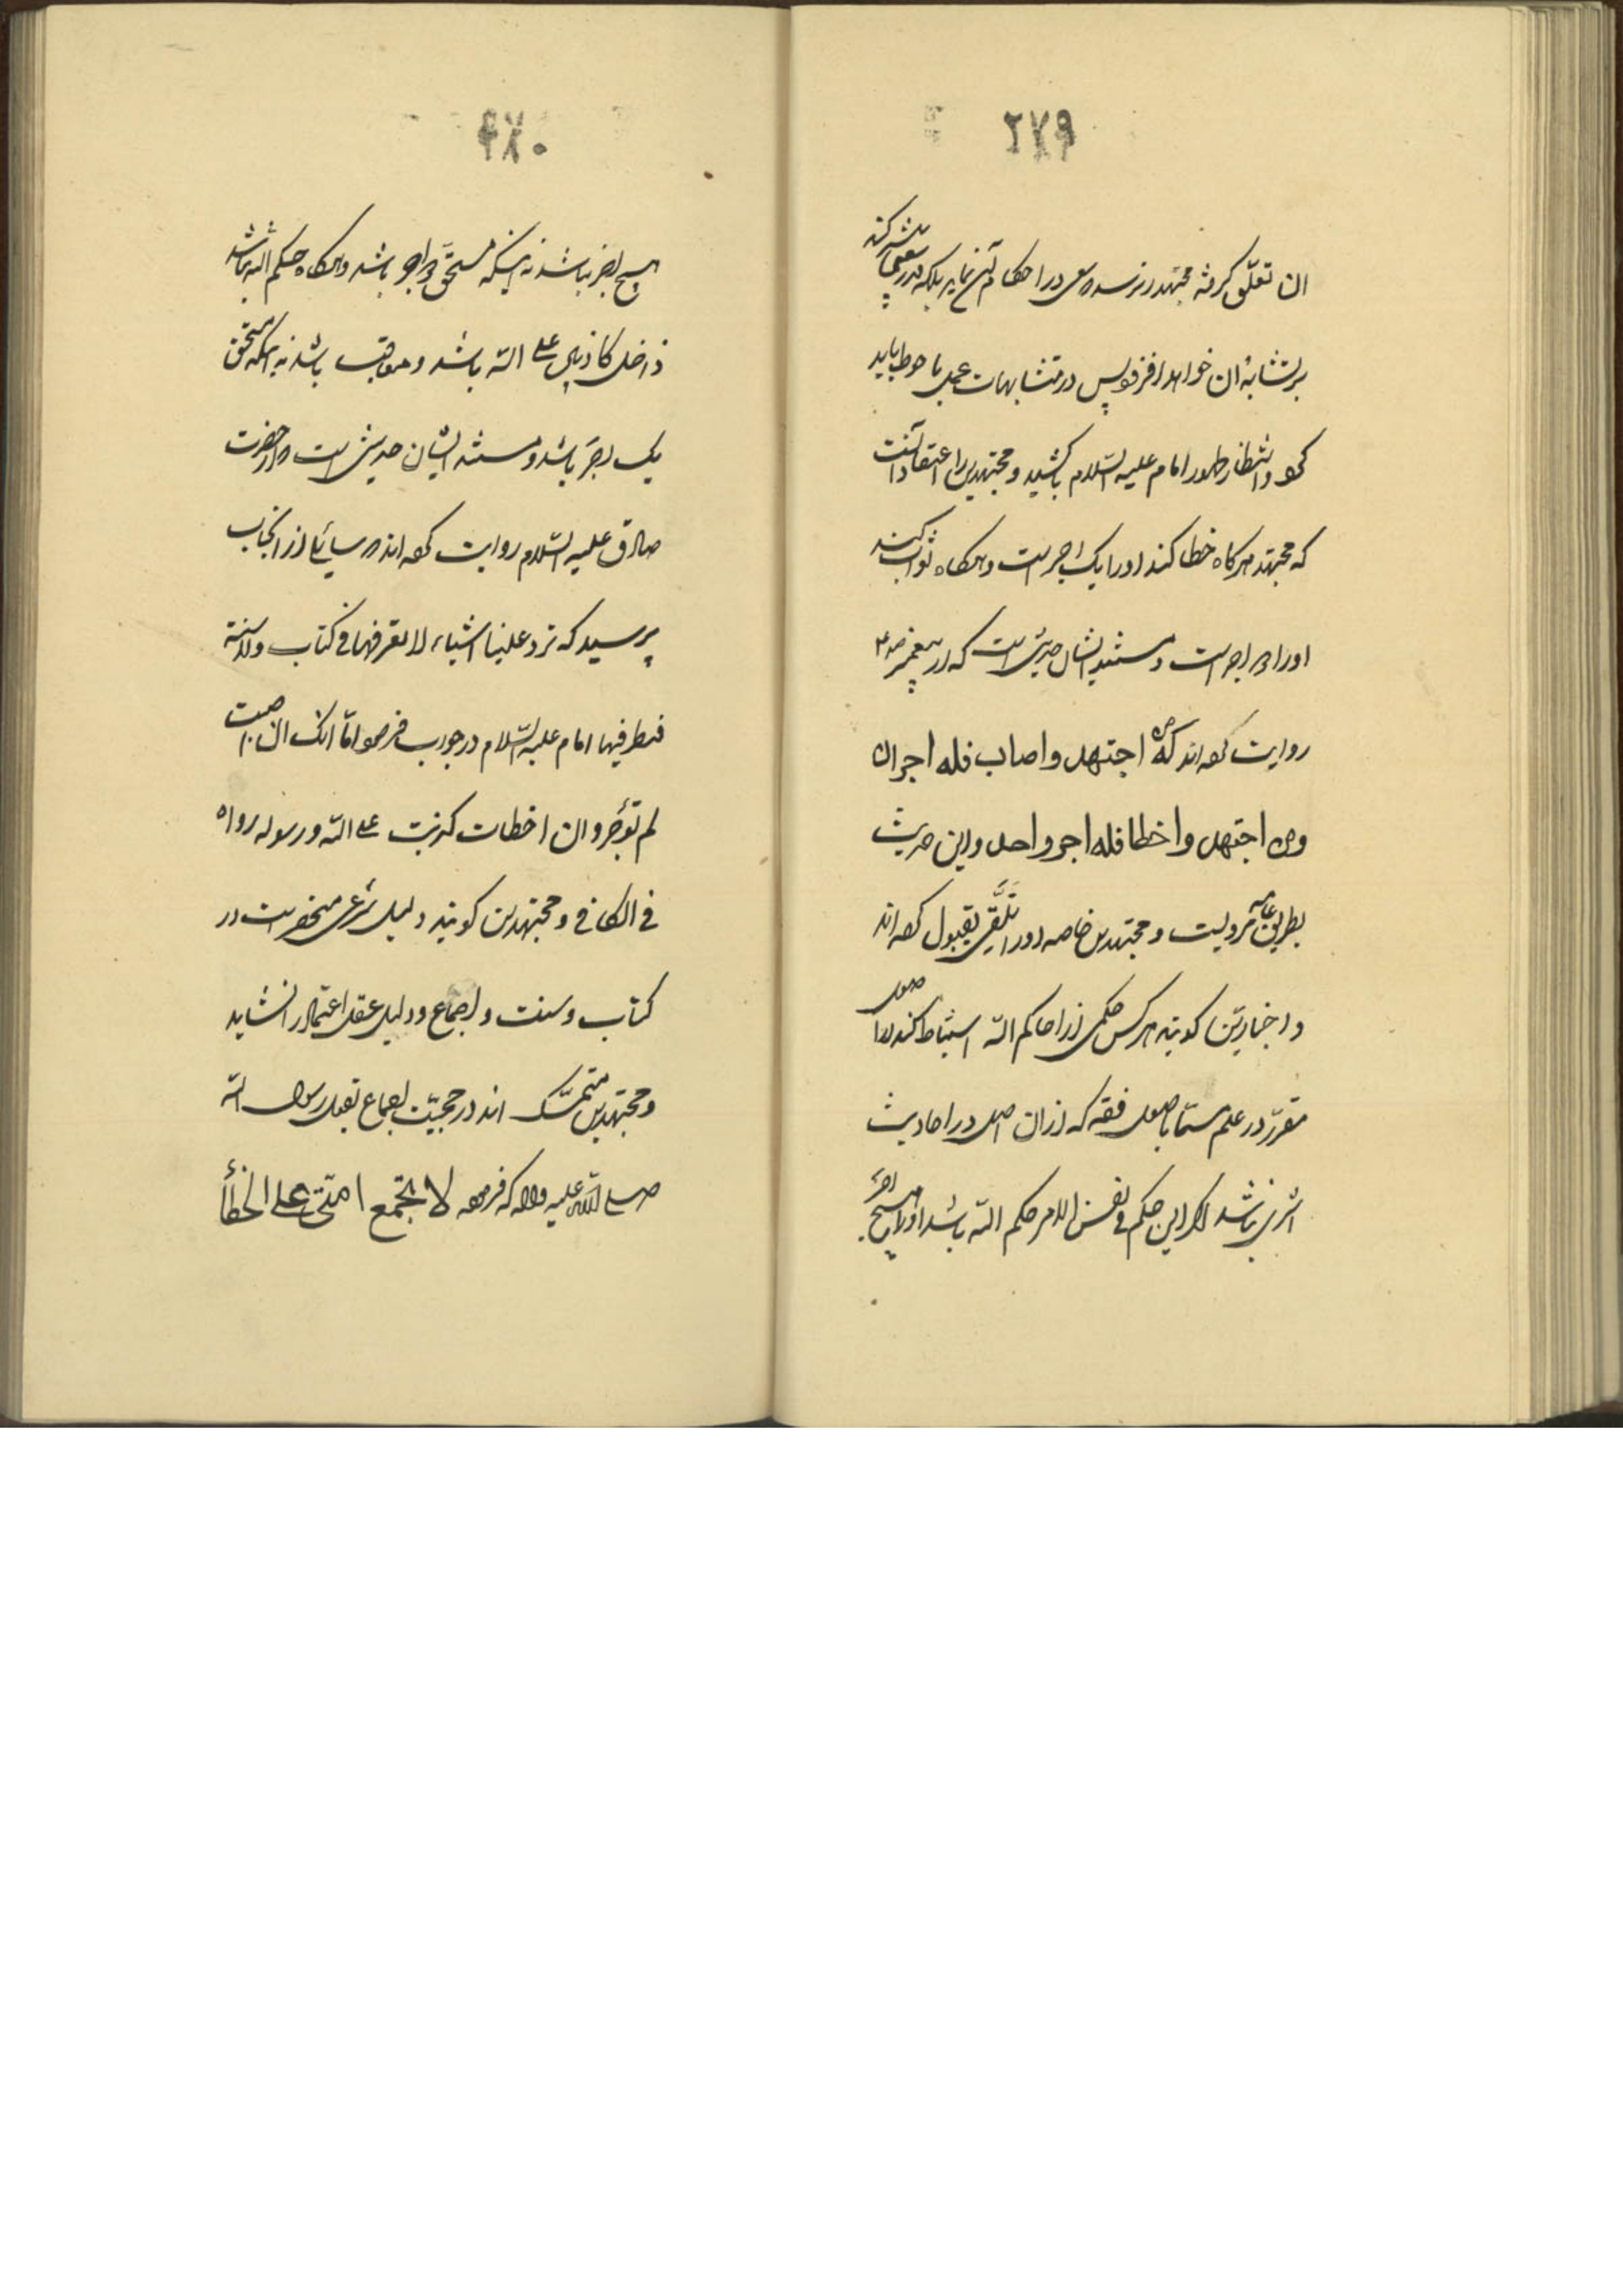 ۲۷۹
ان تعلّق گرفته مجتهد را نرسد که سعی در احکام آن نماید بلکه هر قدر سعی بیشتر کند
بر تشابه ان خواهد افزود پس در متشابهات عمل باحوط باید
کرد و انتظار ظهور امام علیه السّلام باید کشید و مجتهدین را اعتقاد آنست
که مجتهد هرگاه خطا کند او را یک اجر است و هرگاه ثواب کند
او را دو اجر است و مستند ایشان حدیثی است که از پیغمبر ص
روایت کرده اند که من اجتهد و اصاب فله اجران
ومن اجتهد و اخطا فله اجر واحد و این حدیث
بطریق عامه مرویست و مجتهدین خاصه او را تلقّی بقبول کرده اند
و اخباریّین گویند هر کس حکمی از احکام الله استنباط کند از اصول
مقرّر در علم مسمّا باصول فقه که از ان اصل در احادیث
اثری نباشد اگر این حکم فی نفس الامر حکم الله باشد او را هیچ اجر
۲۸۰
هیچ اجر نباشد نه اینکه مستحقّ دو اجر باشد و هرگاه حکم الله نباشد
داخل کاذبین علی الله باشد و معاقب باشد نه اینکه مستحق
یک اجر باشد و مستند ایشان حدیثی است که از حضرت
صادق علیه السّلام روایت کرده اند که سایلی از آنجناب
پرسید که ترد علینا اشیاء لا نعرفها فی کتاب ولا سنة
فننظر فیها امام علیه السّلام در جواب فرمود امّا انک ان اصبت
لم توجر و ان اخطات کذبت علی الله و رسوله رواه
فی الکافی و مجتهدین گویند دلیل شرعی منحصر است در
کتاب و سنت و اجماع و دلیل عقل اعتماد را نشاید
و مجتهدین متمسّک اند در حجیّت اجماع بقول رسول الله
صلی الله علیه واله که فرموده لا تجتمع امّتی علی الخطأ